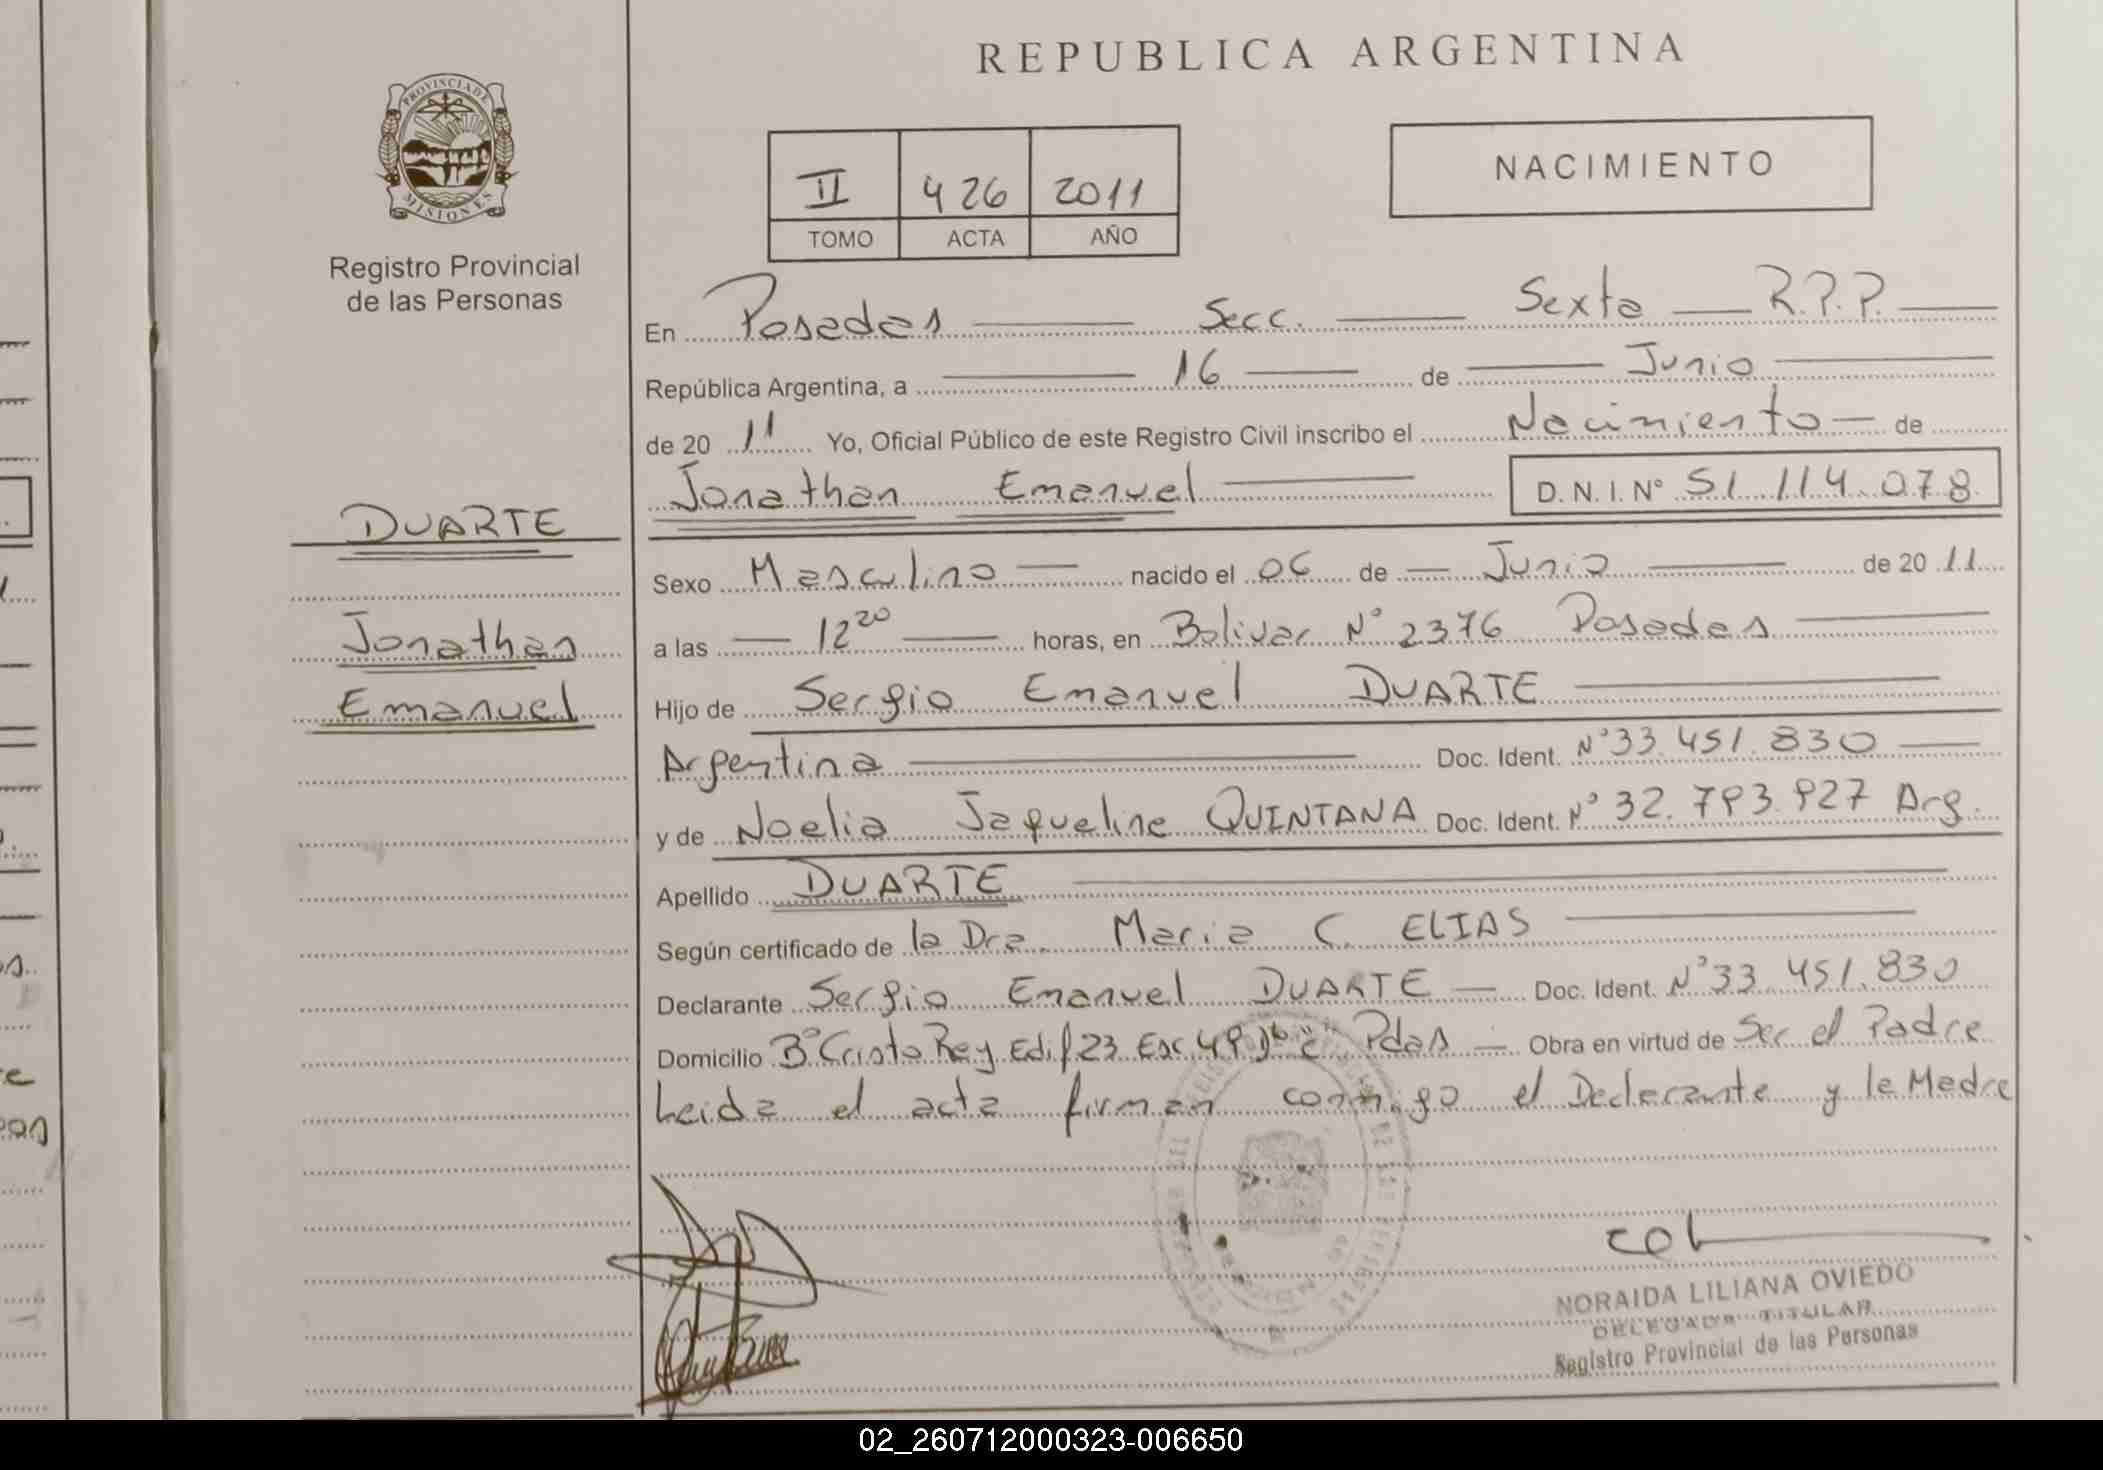 REPUBLICA ARGENTINA
PROVINCIA DE
MISIONES
Registro Provincial
de las Personas
II 426 2011
TOMO ACTA AÑO
NACIMIENTO
En Posadas Secc. Sexta R.P.P.
República Argentina, a 16 de Junio
de 20 11 Yo, Oficial Público de este Registro Civil inscribo el Nacimiento de
Jonathan Emanuel D.N.I. Nº 51.114.078
DUARTE
Jonathan
Emanuel
Sexo Masculino nacido el 06 de Junio de 20 11
a las 12 20 horas, en Bolivar Nº 2376 Posadas
Hijo de Sergio Emanuel DUARTE
Argentina Doc. Ident. Nº 33.451.830
y de Noelia Jaqueline QUINTANA Doc. Ident. Nº 32.793.927 Arg.
Apellido DUARTE
Según certificado de la Dra. Maria C. ELIAS
Declarante Sergio Emanuel DUARTE Doc. Ident. Nº 33.451.830
Domicilio Bº Cristo Rey Edif 23 Esc 49 "C" Pdas Obra en virtud de Ser el Padre
Leida el acta firman conmigo el Declarante y la Madre
NORAIDA LILIANA OVIEDO
DELEGADA TITULAR
Registro Provincial de las Personas
02_260712000323-006650